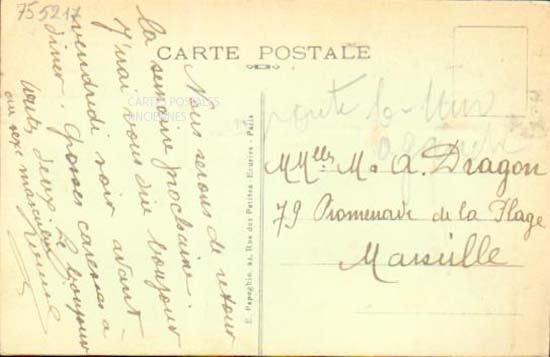 755217
CARTE POSTALE
CARTES POSTALES
ANCIENNES
Nous serons de retour
la semaine prochaine.
J'irai vous dire bonjour
vendredi soir avant-
diner. Grosses caresses à
toutes deux. Le bonjour
au sexe masculin
E. Papeghin, 44, Rue des Petites-Ecuries - Paris
MMelles M. A. Dragon
79 Promenade de la Plage
Marseille